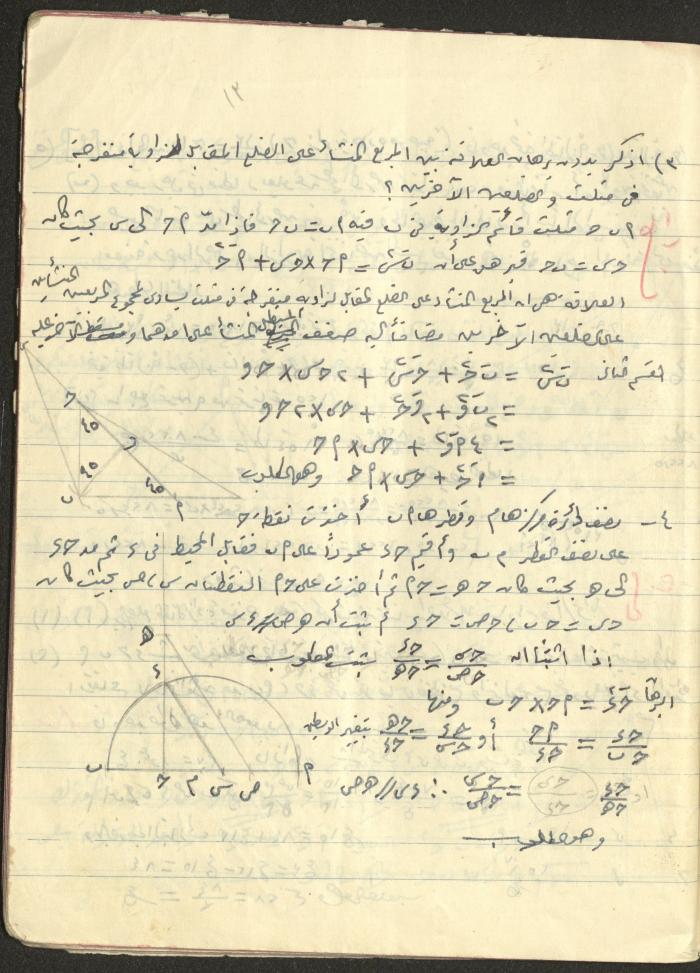 ١٢
٣) اذكر بدون برهان العلاقة بين المربع المنشأ على الضلع المقابل لزاوية منفرجة
فى مثلث والضلعين الآخرين ؟
ا ب ح مثلث قائم الزاوية فى ب فيه ا ب = ب ح فاذا مدّ ا ح الى س بحيث كان
ح س = ب ح فبرهن على أن ب س٢ = ا ح × ح س + ا ح٢
العلاقة هى ان المربع المنشأ على الضلع المقابل لزاوية منفرجة فى مثلث يساوى مجموع المربعين المنشأين
على الضلعين الآخرين مضافاً إليه ضعف المستطيل المنشأ على احدهما ومسقط الآخر عليه
ب س٢ = ب ح٢ + ح س٢ + ٢ ح س × ح و
= ٢ ب و٢ + ٢ و ح٢ + ح س × ٢ ح و
= ٤ ا و٢ + ح س × ا ح
= ا ح٢ + ح س × ا ح وهو المطلوب
٤ - نصف دائرة مركزها م وقطرها ا ب أخذت نقطة ح
على نصف القطر م ب وأقيم ح د عموداً على ا ب فقابل المحيط فى د ثم مد ح د
الى ه بحيث كان ح ه = ح ا ثم أخذت على ح ا النقطتان س ، ص بحيث كان
ح س = ح ب ، ح ص = ح د أثبت أن ه ص // د س
اذا اثبتنا ان ح س / ح ص = ح د / ح ه يثبت المطلوب
البرهان ح د٢ = ا ح × ح ب ومنها
ح د / ح ب = ا ح / ح د أو ح د / ح س = ح ه / ح د بتغيير الوسطين
او ح د / ح ه = ح س / ح د = ح س / ح ص ∴ د س // ه ص
وهو المطلوب
ح
٤٥
و
٤٥
٤٥
ب
ا
ه
د
ب ح م س ص ا